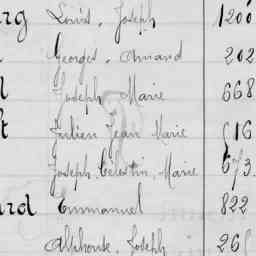 rg Louis, Joseph 1200
Georges, Amand 202
l Joseph Marie 668
t Julien Jean Marie 616
Joseph Célestin, Marie 673
urd Emmanuel 822
Alphonse, Joseph 26